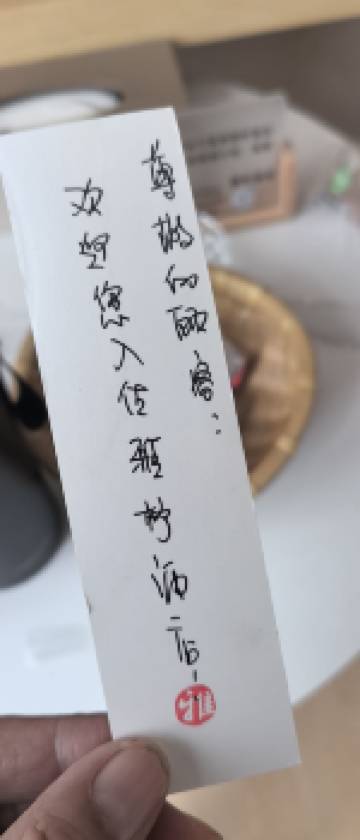 尊敬的顾客：
欢迎您入住雅柠酒店！
雅